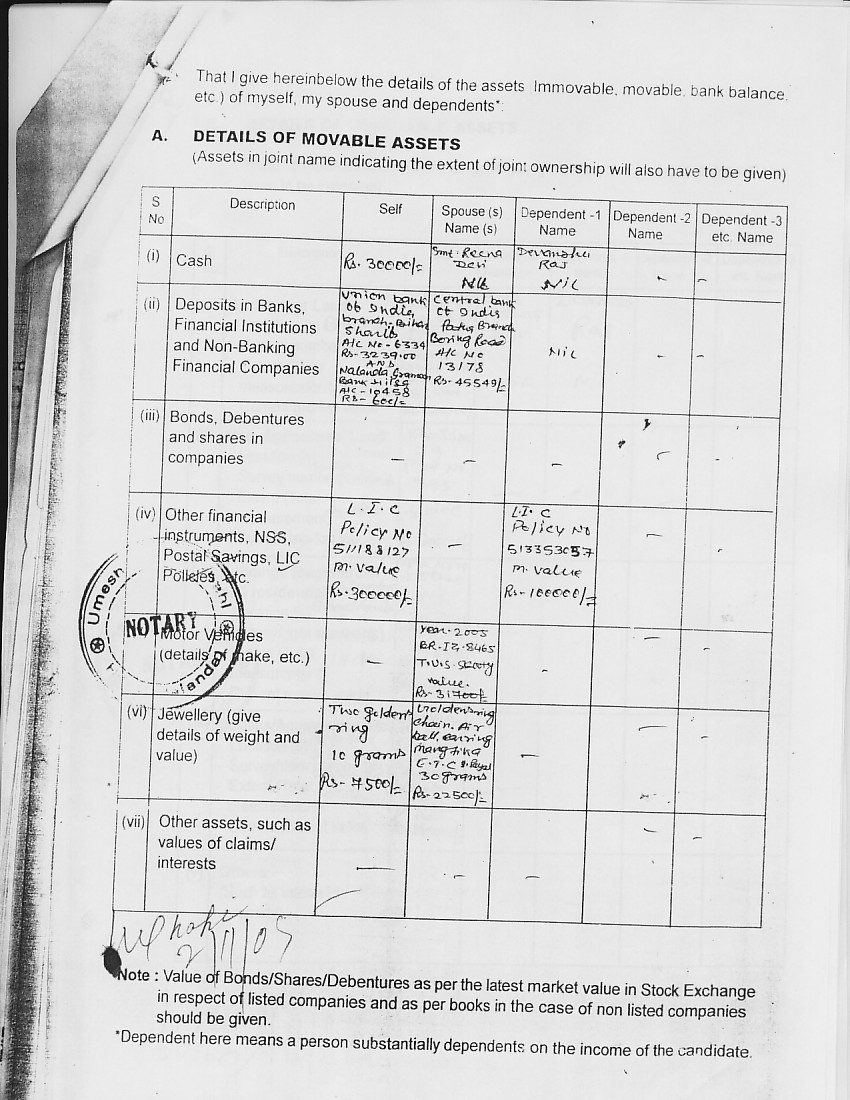 That I give hereinbelow the details of the assets Immovable, movable, bank balance,
etc.) of myself, my spouse and dependents*:
A. DETAILS OF MOVABLE ASSETS
(Assets in joint name indicating the extent of joint ownership will also have to be given)
S No Description Self Spouse (s) Name (s) Dependent -1 Name Dependent -2 Name Dependent -3 etc. Name
(i) Cash
Rs. 30000/=
Smt. Reena
Devi
Nil
Devanshu
Raj
Nil
(ii) Deposits in Banks,
Financial Institutions
and Non-Banking
Financial Companies
Union bank
Of India,
branch. Bihar
Sharib
A/C No - 6334
Rs- 3239.00
AND
Nalanda Grameen
Bank Hilsa
A/C - 10458
Rs- 600/=
Central bank
of India
Branch
Boring Road
A/C No
13178
Rs- 45549/=
Nil
(iii) Bonds, Debentures
and shares in
companies
(iv) Other financial
instruments, NSS,
Postal Savings, LIC
Policies, etc.
L.I.C
Policy No
511188127
m. value
Rs-300000/=
L.I.C
Policy No
513353057
m. value
Rs- 100000/=
Umesh
NOTARY
Motor Vehicles
(details of make, etc.)
Year. 2005
8465
T.V.S.
value.
Rs- 31700/=
(vi) Jewellery (give
details of weight and
value)
Two golden
ring
10 grams
Rs- 7500/=
chain.
30 grams
Rs- 22500/=
(vii) Other assets, such as
values of claims/
interests
Note : Value of Bonds/Shares/Debentures as per the latest market value in Stock Exchange
in respect of listed companies and as per books in the case of non listed companies
should be given.
*Dependent here means a person substantially dependents on the income of the candidate.